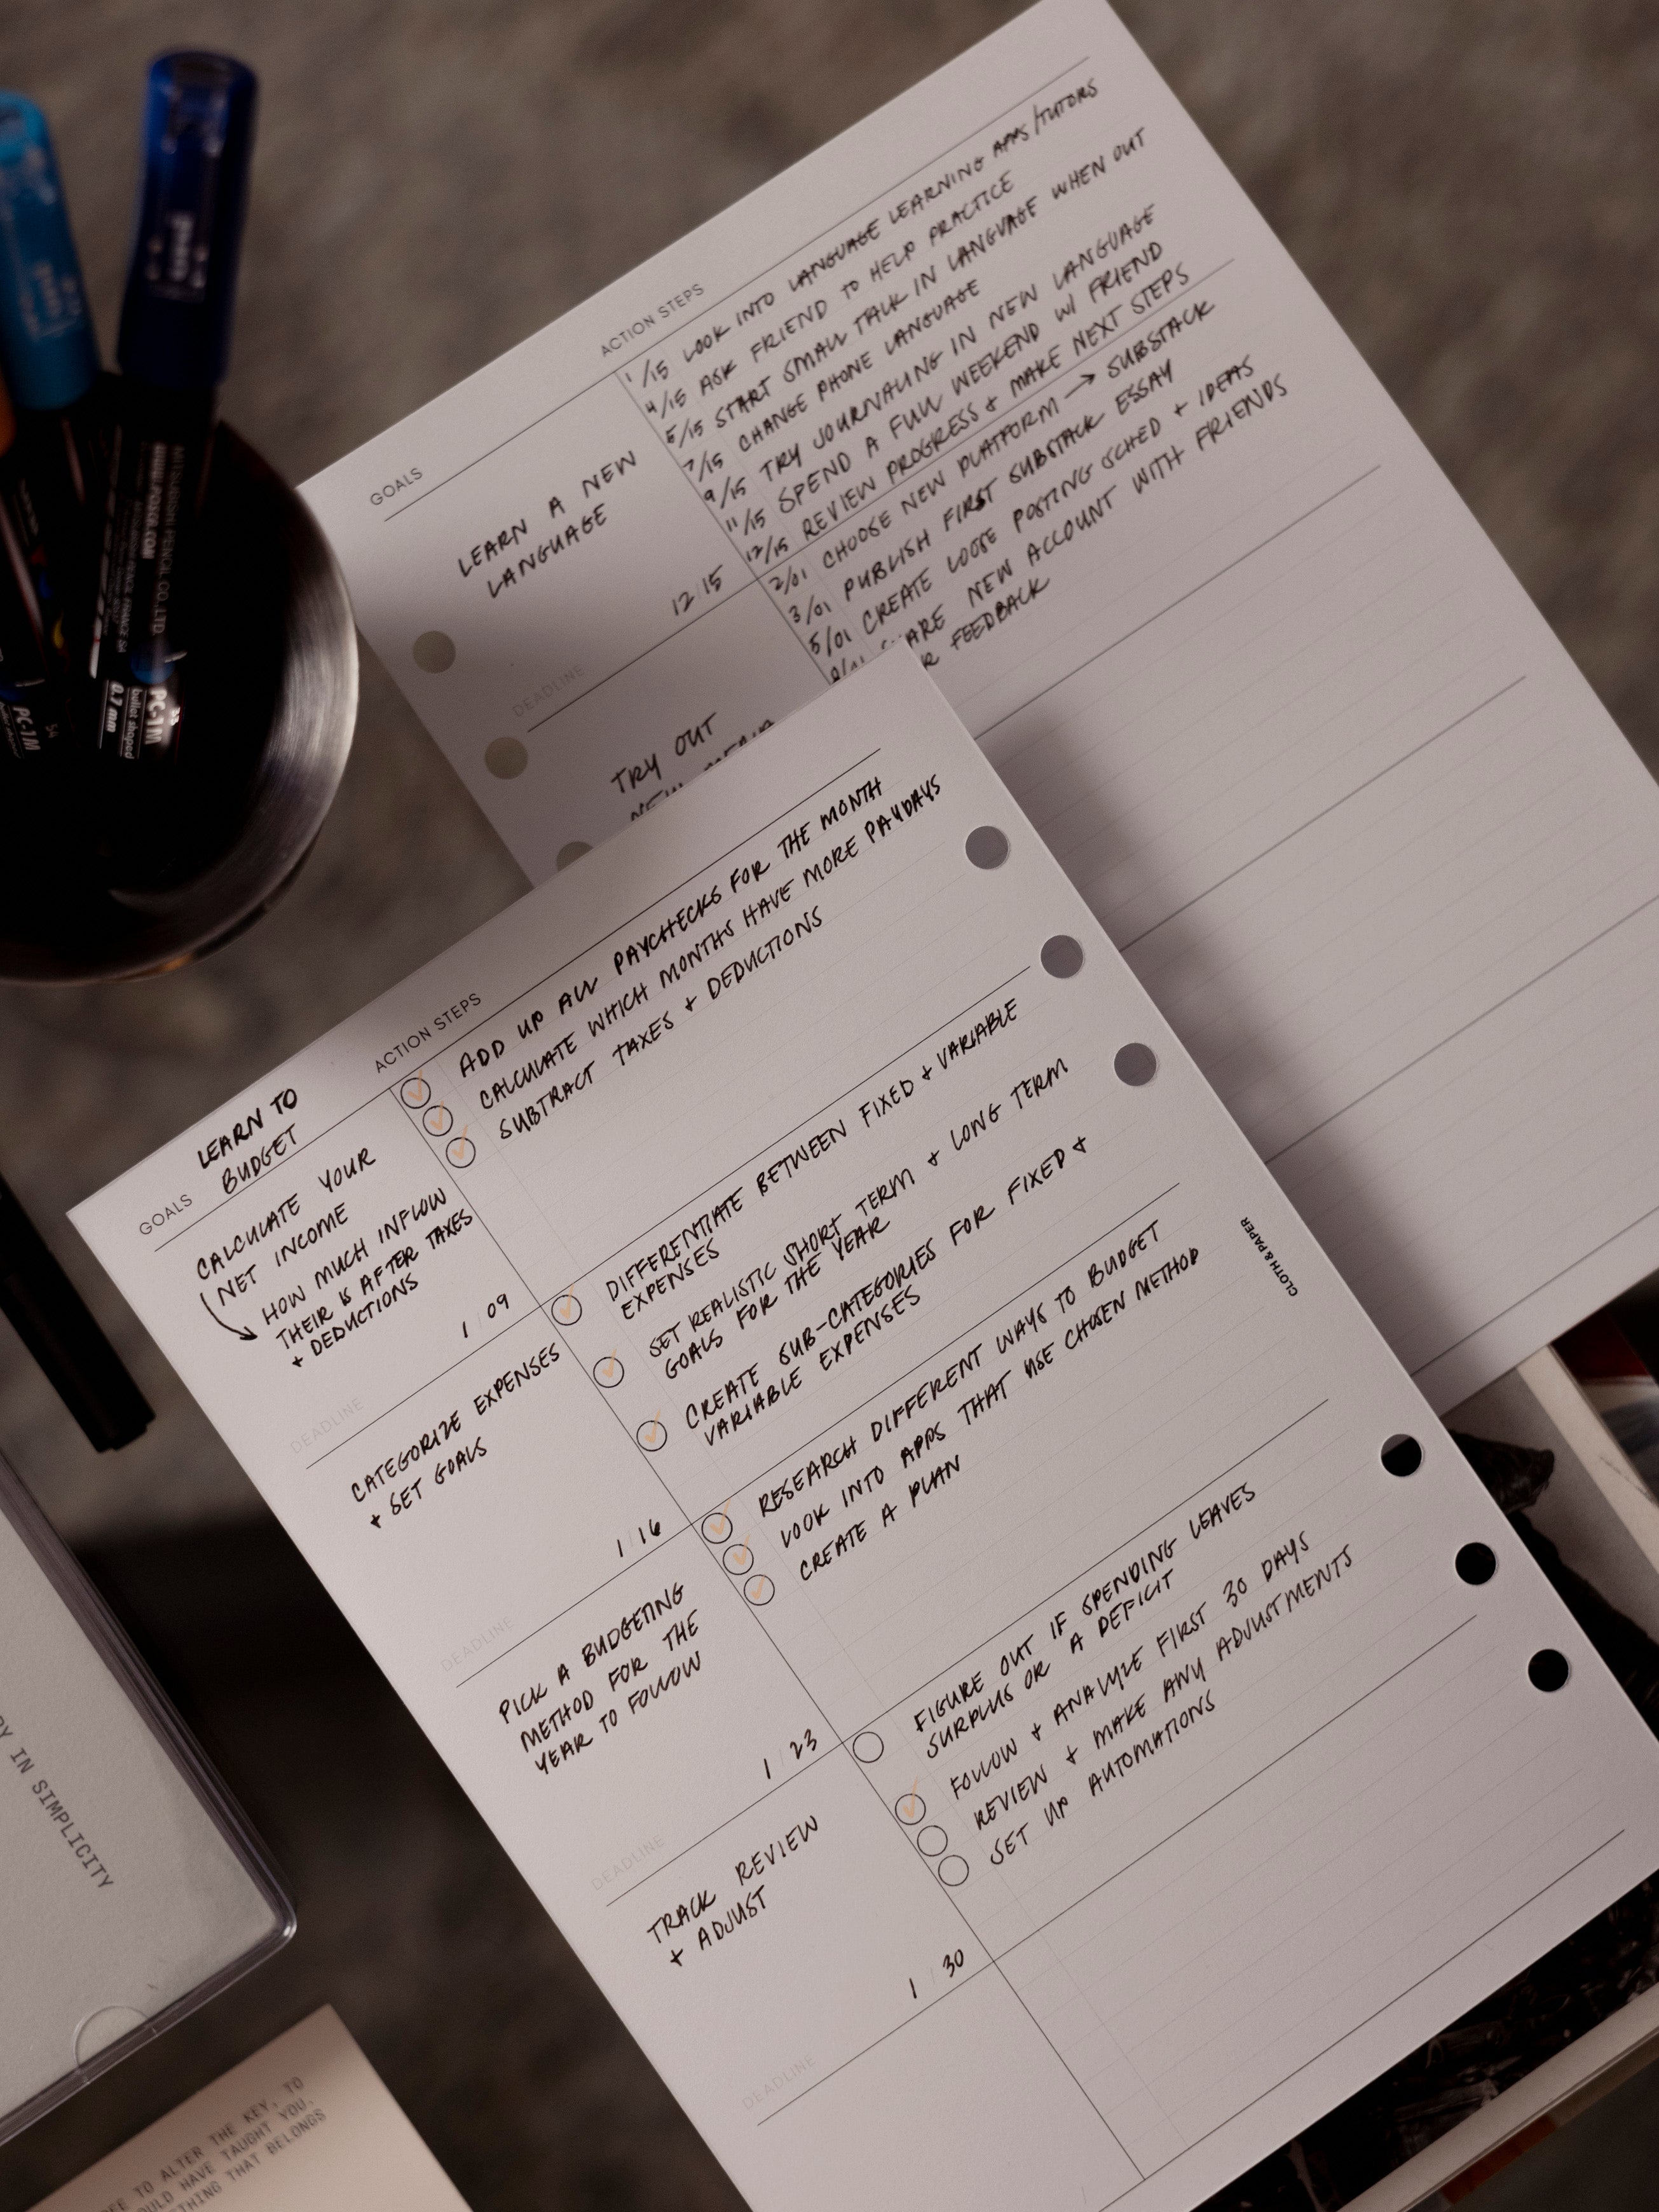 GOALS
ACTION STEPS
LEARN A NEW
LANGUAGE
12/15
DEADLINE
1/15 LOOK INTO LANGUAGE LEARNING APPS/TUTORS
4/15 ASK FRIEND TO HELP PRACTICE
5/15 START SMALL TALK IN LANGUAGE WHEN OUT
7/15 CHANGE PHONE LANGUAGE
9/15 TRY JOURNALING IN NEW LANGUAGE
11/15 SPEND A FULL WEEKEND W/ FRIEND
12/15 REVIEW PROGRESS & MAKE NEXT STEPS
TRY OUT
2/01 CHOOSE NEW PLATFORM → SUBSTACK
3/01 PUBLISH FIRST SUBSTACK ESSAY
5/01 CREATE LOOSE POSTING SCHED + IDEAS
NEW ACCOUNT WITH FRIENDS
FEEDBACK
LEARN TO
GOALS BUDGET
ACTION STEPS
CALCULATE YOUR
NET INCOME
HOW MUCH INFLOW
THEIR IS AFTER TAXES
+ DEDUCTIONS
1/09
DEADLINE
ADD UP ALL PAYCHECKS FOR THE MONTH
CALCULATE WHICH MONTHS HAVE MORE PAYDAYS
SUBTRACT TAXES + DEDUCTIONS
CATEGORIZE EXPENSES
+ SET GOALS
1/16
DEADLINE
DIFFERENTIATE BETWEEN FIXED + VARIABLE
EXPENSES
SET REALISTIC SHORT TERM + LONG TERM
GOALS FOR THE YEAR
CREATE SUB-CATEGORIES FOR FIXED +
VARIABLE EXPENSES
PICK A BUDGETING
METHOD FOR THE
YEAR TO FOLLOW
1/23
DEADLINE
RESEARCH DIFFERENT WAYS TO BUDGET
LOOK INTO APPS THAT USE CHOSEN METHOD
CREATE A PLAN
TRACK REVIEW
+ ADJUST
1/30
DEADLINE
FIGURE OUT IF SPENDING LEAVES
SURPLUS OR A DEFICIT
FOLLOW + ANALYZE FIRST 30 DAYS
REVIEW + MAKE ANY ADJUSTMENTS
SET UP AUTOMATIONS
CLOTH & PAPER
posca
MITSUBISHI PENCIL CO., LTD.
WWW.POSCA.COM
PC-1M
bullet shaped
0.7 mm
PC-1M
IN SIMPLICITY
TO ALTER THE KEY, TO
HAVE TAUGHT YOU.
THAT BELONGS